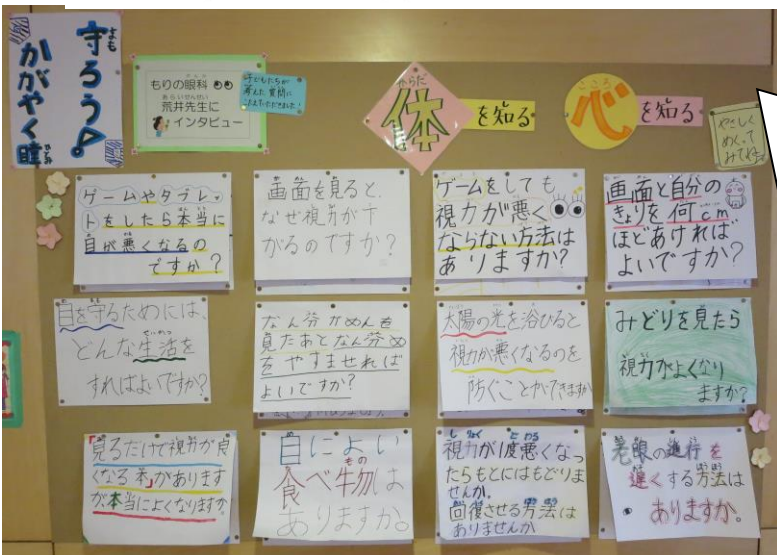 守ろう!
かがやく瞳
もりの眼科
荒井先生に
インタビュー
子どもたちが
考えた質問に
こたえていただきました!
体を知る
心を知る
やさしく
めくって
みてね
ゲームやタブレッ
トをしたら本当に
目が悪くなるの
ですか?
画面を見ると、
なぜ視力が下
がるのですか?
ゲームをしても
視力が悪く
ならない方法は
ありますか?
画面と自分の
きょりを何cm
ほどあければ
よいですか?
目を守るためには、
どんな生活を
すればよいですか?
なん分がめんを
見たあとなん分め
をやすませれば
よいですか?
太陽の光を浴びると
視力が悪くなるのを
防ぐことができますか
みどりを見たら
視力がよくなり
ますか?
「見るだけで視力が良
くなる本」があります
が、本当によくなりますか
目によい
食べ物は
ありますか。
視力が1度悪くなっ
たらもとにはもどりま
せんか。
回復させる方法は
ありませんか
老眼の進行を
遅くする方法は
ありますか。